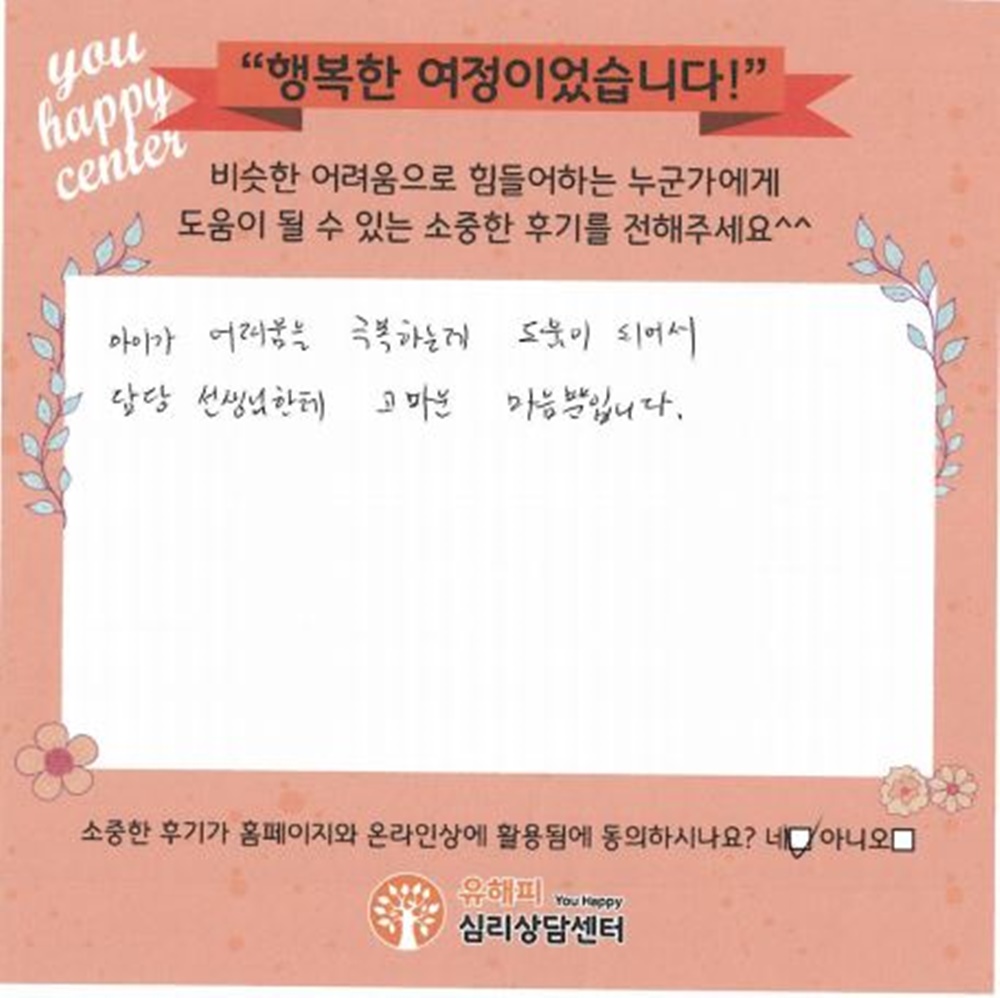 you
happy
center
“행복한 여정이었습니다!”
비슷한 어려움으로 힘들어하는 누군가에게
도움이 될 수 있는 소중한 후기를 전해주세요^^
아이가 어려움을 극복하는데 도움이 되어서
담당 선생님한테 고마운 마음뿐입니다.
소중한 후기가 홈페이지와 온라인상에 활용됨에 동의하시나요? 네 아니오
유해피 You Happy
심리상담센터